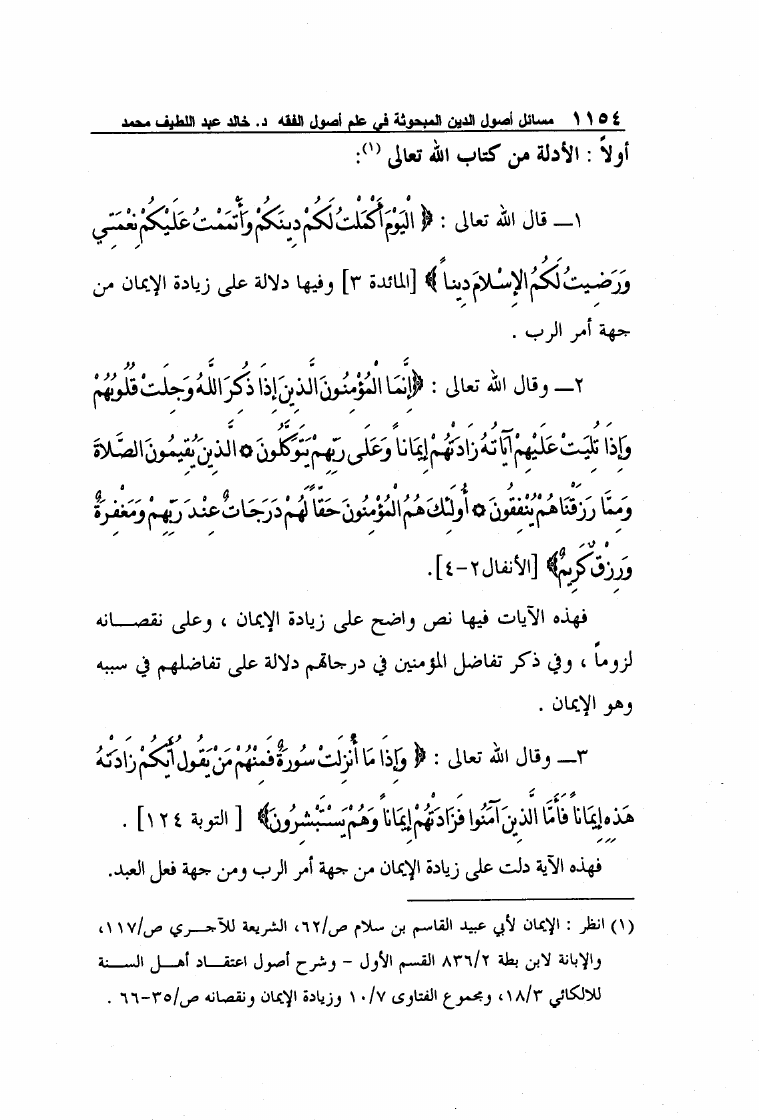 ١١٥٤ مسائل أصول الدين المبحوثة في علم أصول الفقه د. خالد عبد اللطيف محمد
أولاً : الأدلة من كتاب الله تعالى (١):
١ـ قال الله تعالى : ﴿ الْيَوْمَ أَكْمَلْتُ لَكُمْ دِينَكُمْ وَأَتْمَمْتُ عَلَيْكُمْ نِعْمَتِي
وَرَضِيتُ لَكُمُ الإِسْلامَ دِيناً ﴾ [المائدة ٣] وفيها دلالة على زيادة الإيمان من
جهة أمر الرب .
٢ـ وقال الله تعالى : ﴿إِنَّمَا الْمُؤْمِنُونَ الَّذِينَ إِذَا ذُكِرَ اللَّهُ وَجِلَتْ قُلُوبُهُمْ
وَإِذَا تُلِيَتْ عَلَيْهِمْ آيَاتُهُ زَادَتْهُمْ إِيمَاناً وَعَلَى رَبِّهِمْ يَتَوَكَّلُونَ * الَّذِينَ يُقِيمُونَ الصَّلاةَ
وَمِمَّا رَزَقْنَاهُمْ يُنْفِقُونَ * أُولَئِكَ هُمُ الْمُؤْمِنُونَ حَقّاً لَهُمْ دَرَجَاتٌ عِنْدَ رَبِّهِمْ وَمَغْفِرَةٌ
وَرِزْقٌ كَرِيمٌ﴾ [الأنفال ٢-٤].
فهذه الآيات فيها نص واضح على زيادة الإيمان ، وعلى نقصـــانه
لزوماً ، وفي ذكر تفاضل المؤمنين في درجاتهم دلالة على تفاضلهم في سببه
وهو الإيمان .
٣ـ وقال الله تعالى : ﴿ وَإِذَا مَا أُنْزِلَتْ سُورَةٌ فَمِنْهُمْ مَنْ يَقُولُ أَيُّكُمْ زَادَتْهُ
هَذِهِ إِيمَاناً فَأَمَّا الَّذِينَ آمَنُوا فَزَادَتْهُمْ إِيمَاناً وَهُمْ يَسْتَبْشِرُونَ﴾ [ التوبة ١٢٤] .
فهذه الآية دلت على زيادة الإيمان من جهة أمر الرب ومن جهة فعل العبد.
(١) انظر : الإيمان لأبي عبيد القاسم بن سلام ص/٦٢، الشريعة للآجــري ص/١١٧،
والإبانة لابن بطة ٨٣٦/٢ القسم الأول - وشرح أصول اعتقـــاد أهـــل الســـنة
للالكائي ١٨/٣، ومجموع الفتاوى ١٠/٧ وزيادة الإيمان ونقصانه ص/٣٥-٦٦ .